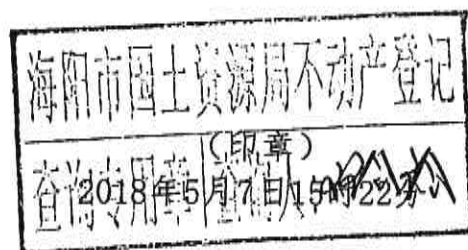 海阳市国土资源局不动产登记
(印章)
查询专用章
2018年5月7日15时22分